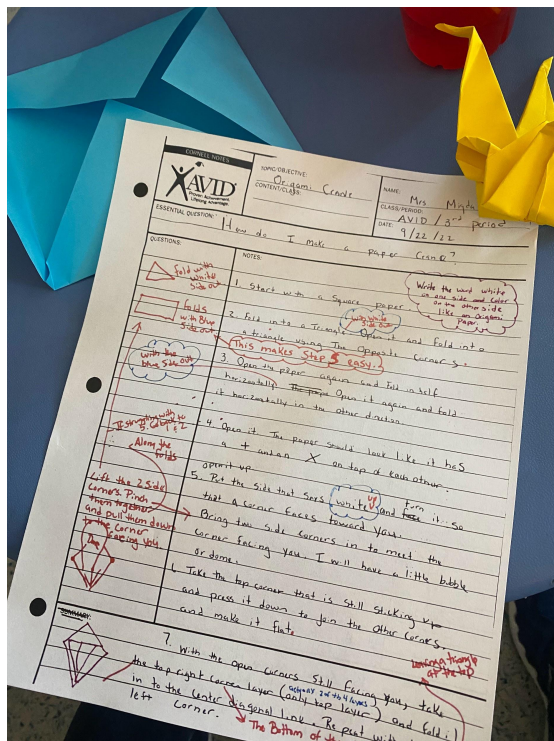 CORNELL NOTES
AVID
Proven Achievement.
Lifelong Advantage.
TOPIC/OBJECTIVE:
Origami Crane
CONTENT/CLASS:
NAME:
Mrs
CLASS/PERIOD:
AVID / 3rd period
DATE: 9/22/22
ESSENTIAL QUESTION: How do I make a paper Crane?
QUESTIONS:
NOTES:
fold with
white
side out
folds
with Blue
Side out
with the
blue Side out
If struggling with
5. Go back to
1 & 2
Along the
folds
Lift the 2 side
Corners. Pinch
them together
and pull them down
to the Corner
facing you.
Write the word white
on one side and color
on the other side
like an Origami
Paper.
1. Start with a Square paper
2. Fold into a Triangle. Open it and Fold into
with white
Side out
a triangle using The Opposite Corners.
This makes Step 5 easy.
3. Open the paper again and Fold in half
horizontally Open it again and fold
it horizontally in the other direction.
4. Open it. The paper should look like it has
a + and an X on top of each other.
open it up.
5. Put the side that says white up and Turn it. So
that a corner faces toward you.
Bring two side corners in to meet the
corner facing you. I will have a little bubble
or dome.
6. Take the top corner that is still sticking up
and press it down to join the other Corners,
and make it flat.
SUMMARY:
7. With the open corners still facing you, take
the top right corner layer (only top layer) and fold it
actually 2 of the 4 layers
in to the Center diagonal line. Repeat with
left corner.
The Bottom of
Leaving a triangle
at the top